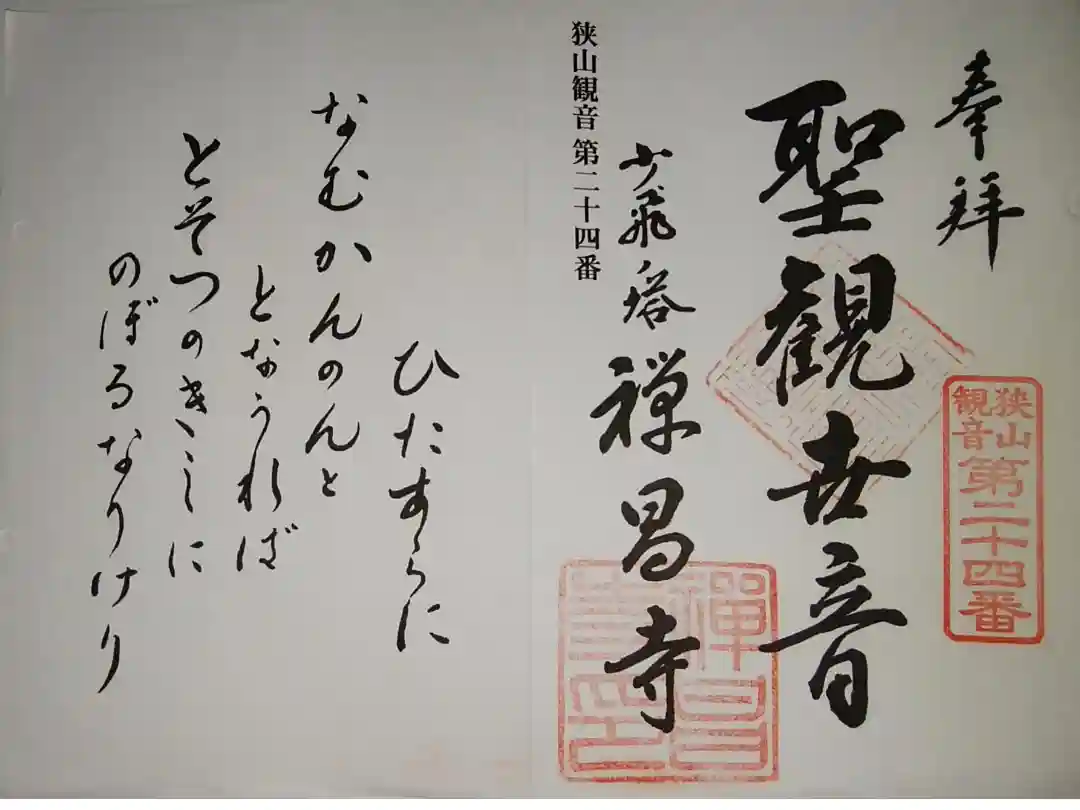 奉拝
狭山
観音
第二十四番
聖観世音
少飛塔 禅昌寺
禪昌
狭山観音 第二十四番
ひたすらに
なむかんのんと
となうれば
とそつのきしに
のぼるなりけり